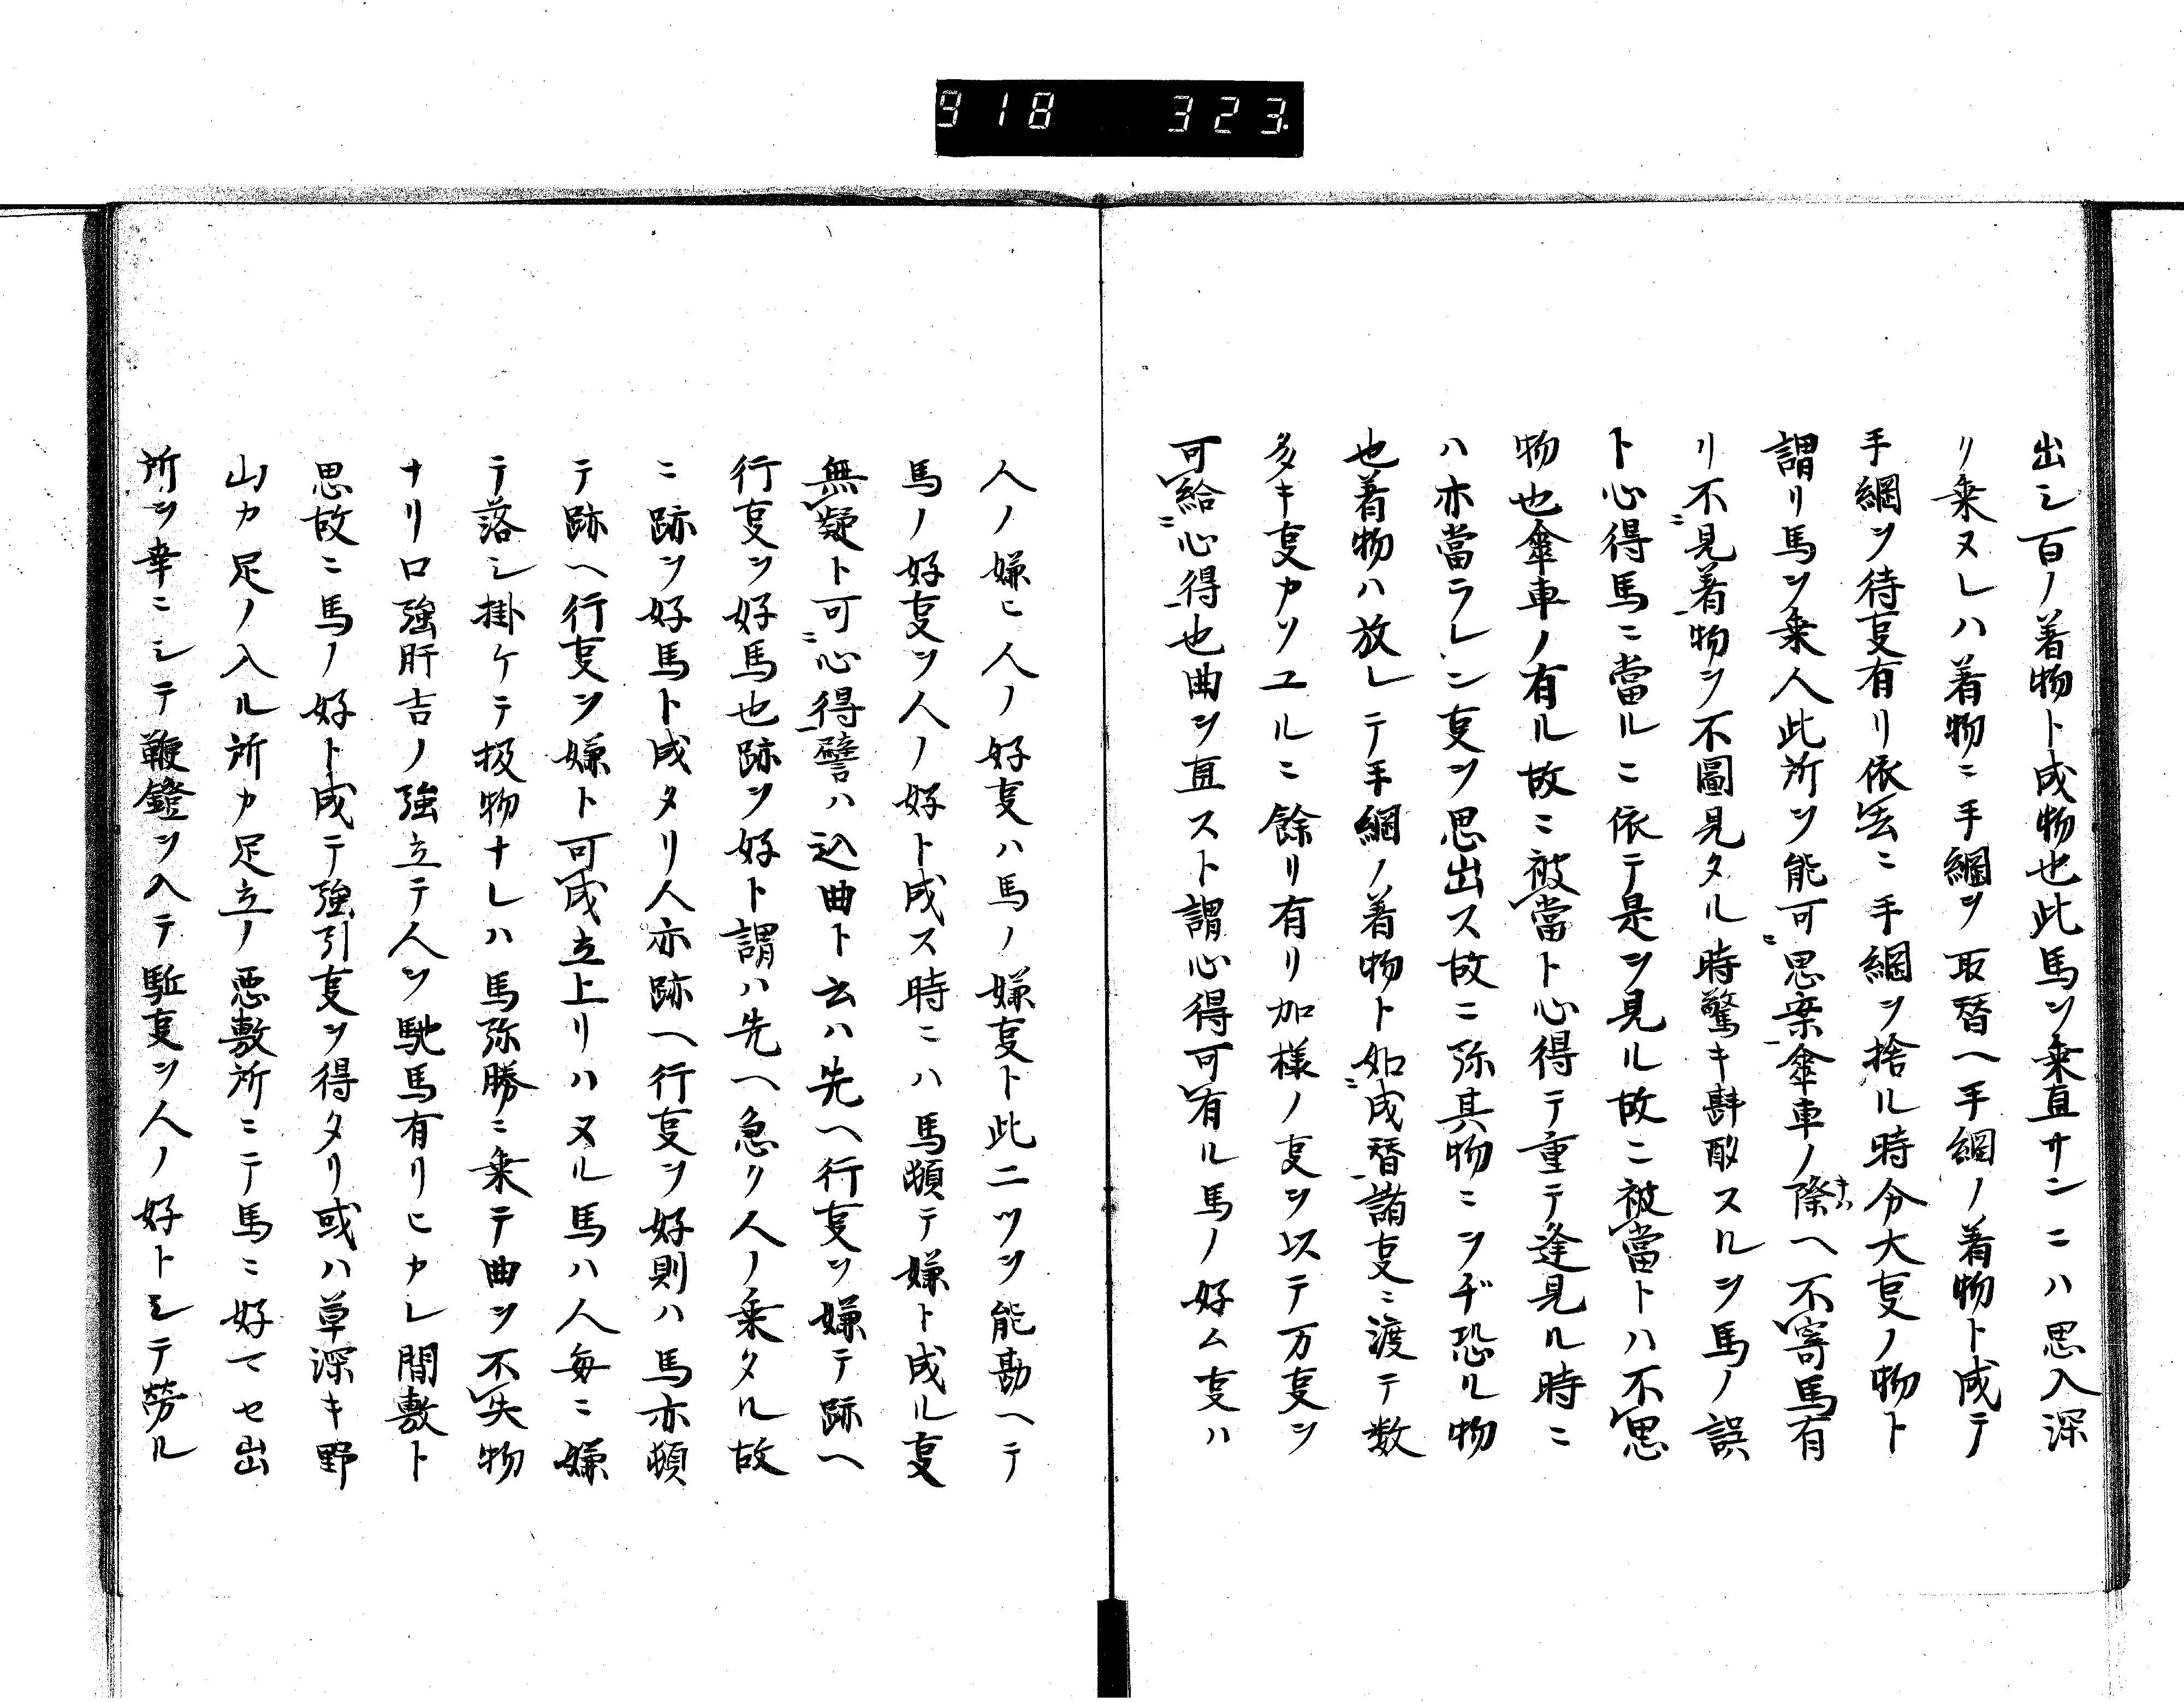 918 323
出シ百ノ着物ト成物也此馬ヲ乗直サンニハ思入深
リ乗ヌレハ着物ニ手綱ヲ取替ヘ手綱ノ着物ト成テ
手綱ヲ待支有リ依去ニ手綱ヲ捨ル時分大支ノ物ト
謂リ馬ヲ乗人此所ヲ能可ニ思案一傘車ノ際キハヘ不レ寄馬有
リ不ニ見着一物ヲ不圖見タル時驚キ斟酌スルヲ馬ノ誤
ト心得馬ニ當ルニ依テ是ヲ見ル故ニ被レ當トハ不レ思
物也傘車ノ有ル故ニ被レ當ト心得テ重テ逢見ル時ニ
ハ亦當ラレン支ヲ思出ス故ニ弥其物ミヲヂ恐ル物
也着物ハ放レテ手綱ノ着物ト如ニ成替一諸支ニ渡テ数
多キ支カソユルニ餘リ有リ加様ノ支ヲ以テ万支ヲ
可レ給ニ心得一也曲ヲ直スト謂心得可レ有ル馬ノ好ム支ハ
人ノ嫌ヒ人ノ好支ハ馬ノ嫌支ト此二ツヲ能勘ヘテ
馬ノ好支ヲ人ノ好ト成ス時ニハ馬頓テ嫌ト成ル支
無レ疑ト可ニ心得一譬ハ込曲ト云ハ先ヘ行支ヲ嫌テ跡ヘ
行支ヲ好馬也跡ヲ好ト謂ハ先ヘ急ク人ノ乗タル故
ニ跡ヲ好馬ト成タリ人亦跡ヘ行支ヲ好則ハ馬亦頓
テ跡ヘ行支ヲ嫌ト可レ成立上リハヌル馬ハ人毎ニ嫌
テ落シ掛ケテ扱物ナレハ馬弥勝ニ乗テ曲ヲ不レ失物
ナリ口強肝吉ノ強立テ人ヲ馳馬有リヒカレ間敷ト
思故ニ馬ノ好ト成テ強引支ヲ得タリ或ハ草深キ野
山カ足ノ入ル所カ足立ノ悪敷所ニテ馬ニ好マセ出
所ヲ幸ニシテ鞭鐙ヲ入テ駈支ヲ人ノ好トシテ労ル